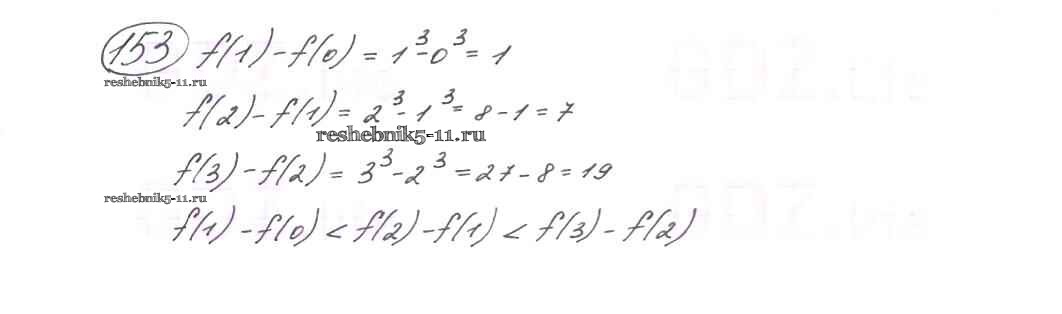 153 f(1) - f(0) = 1³ - 0³ = 1
reshebnik5-11.ru
f(2) - f(1) = 2³ - 1³ = 8 - 1 = 7
reshebnik5-11.ru
f(3) - f(2) = 3³ - 2³ = 27 - 8 = 19
reshebnik5-11.ru
f(1) - f(0) < f(2) - f(1) < f(3) - f(2)